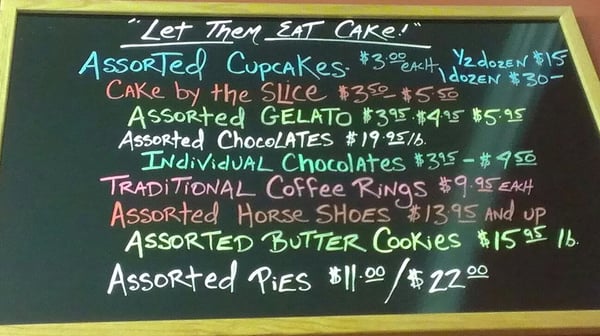 "Let Them Eat Cake!"
Assorted Cupcakes- $3.00 each, 1/2 dozen $15
1 dozen $30-
Cake by the Slice $3.50 - $5.50
Assorted Gelato $3.95 $4.95 $5.95
Assorted Chocolates $19.95/lb.
Individual Chocolates $3.95 - $4.50
Traditional Coffee Rings $9.95 each
Assorted Horse Shoes $13.95 and up
Assorted Butter Cookies $15.95 lb.
Assorted Pies $11.00/$22.00